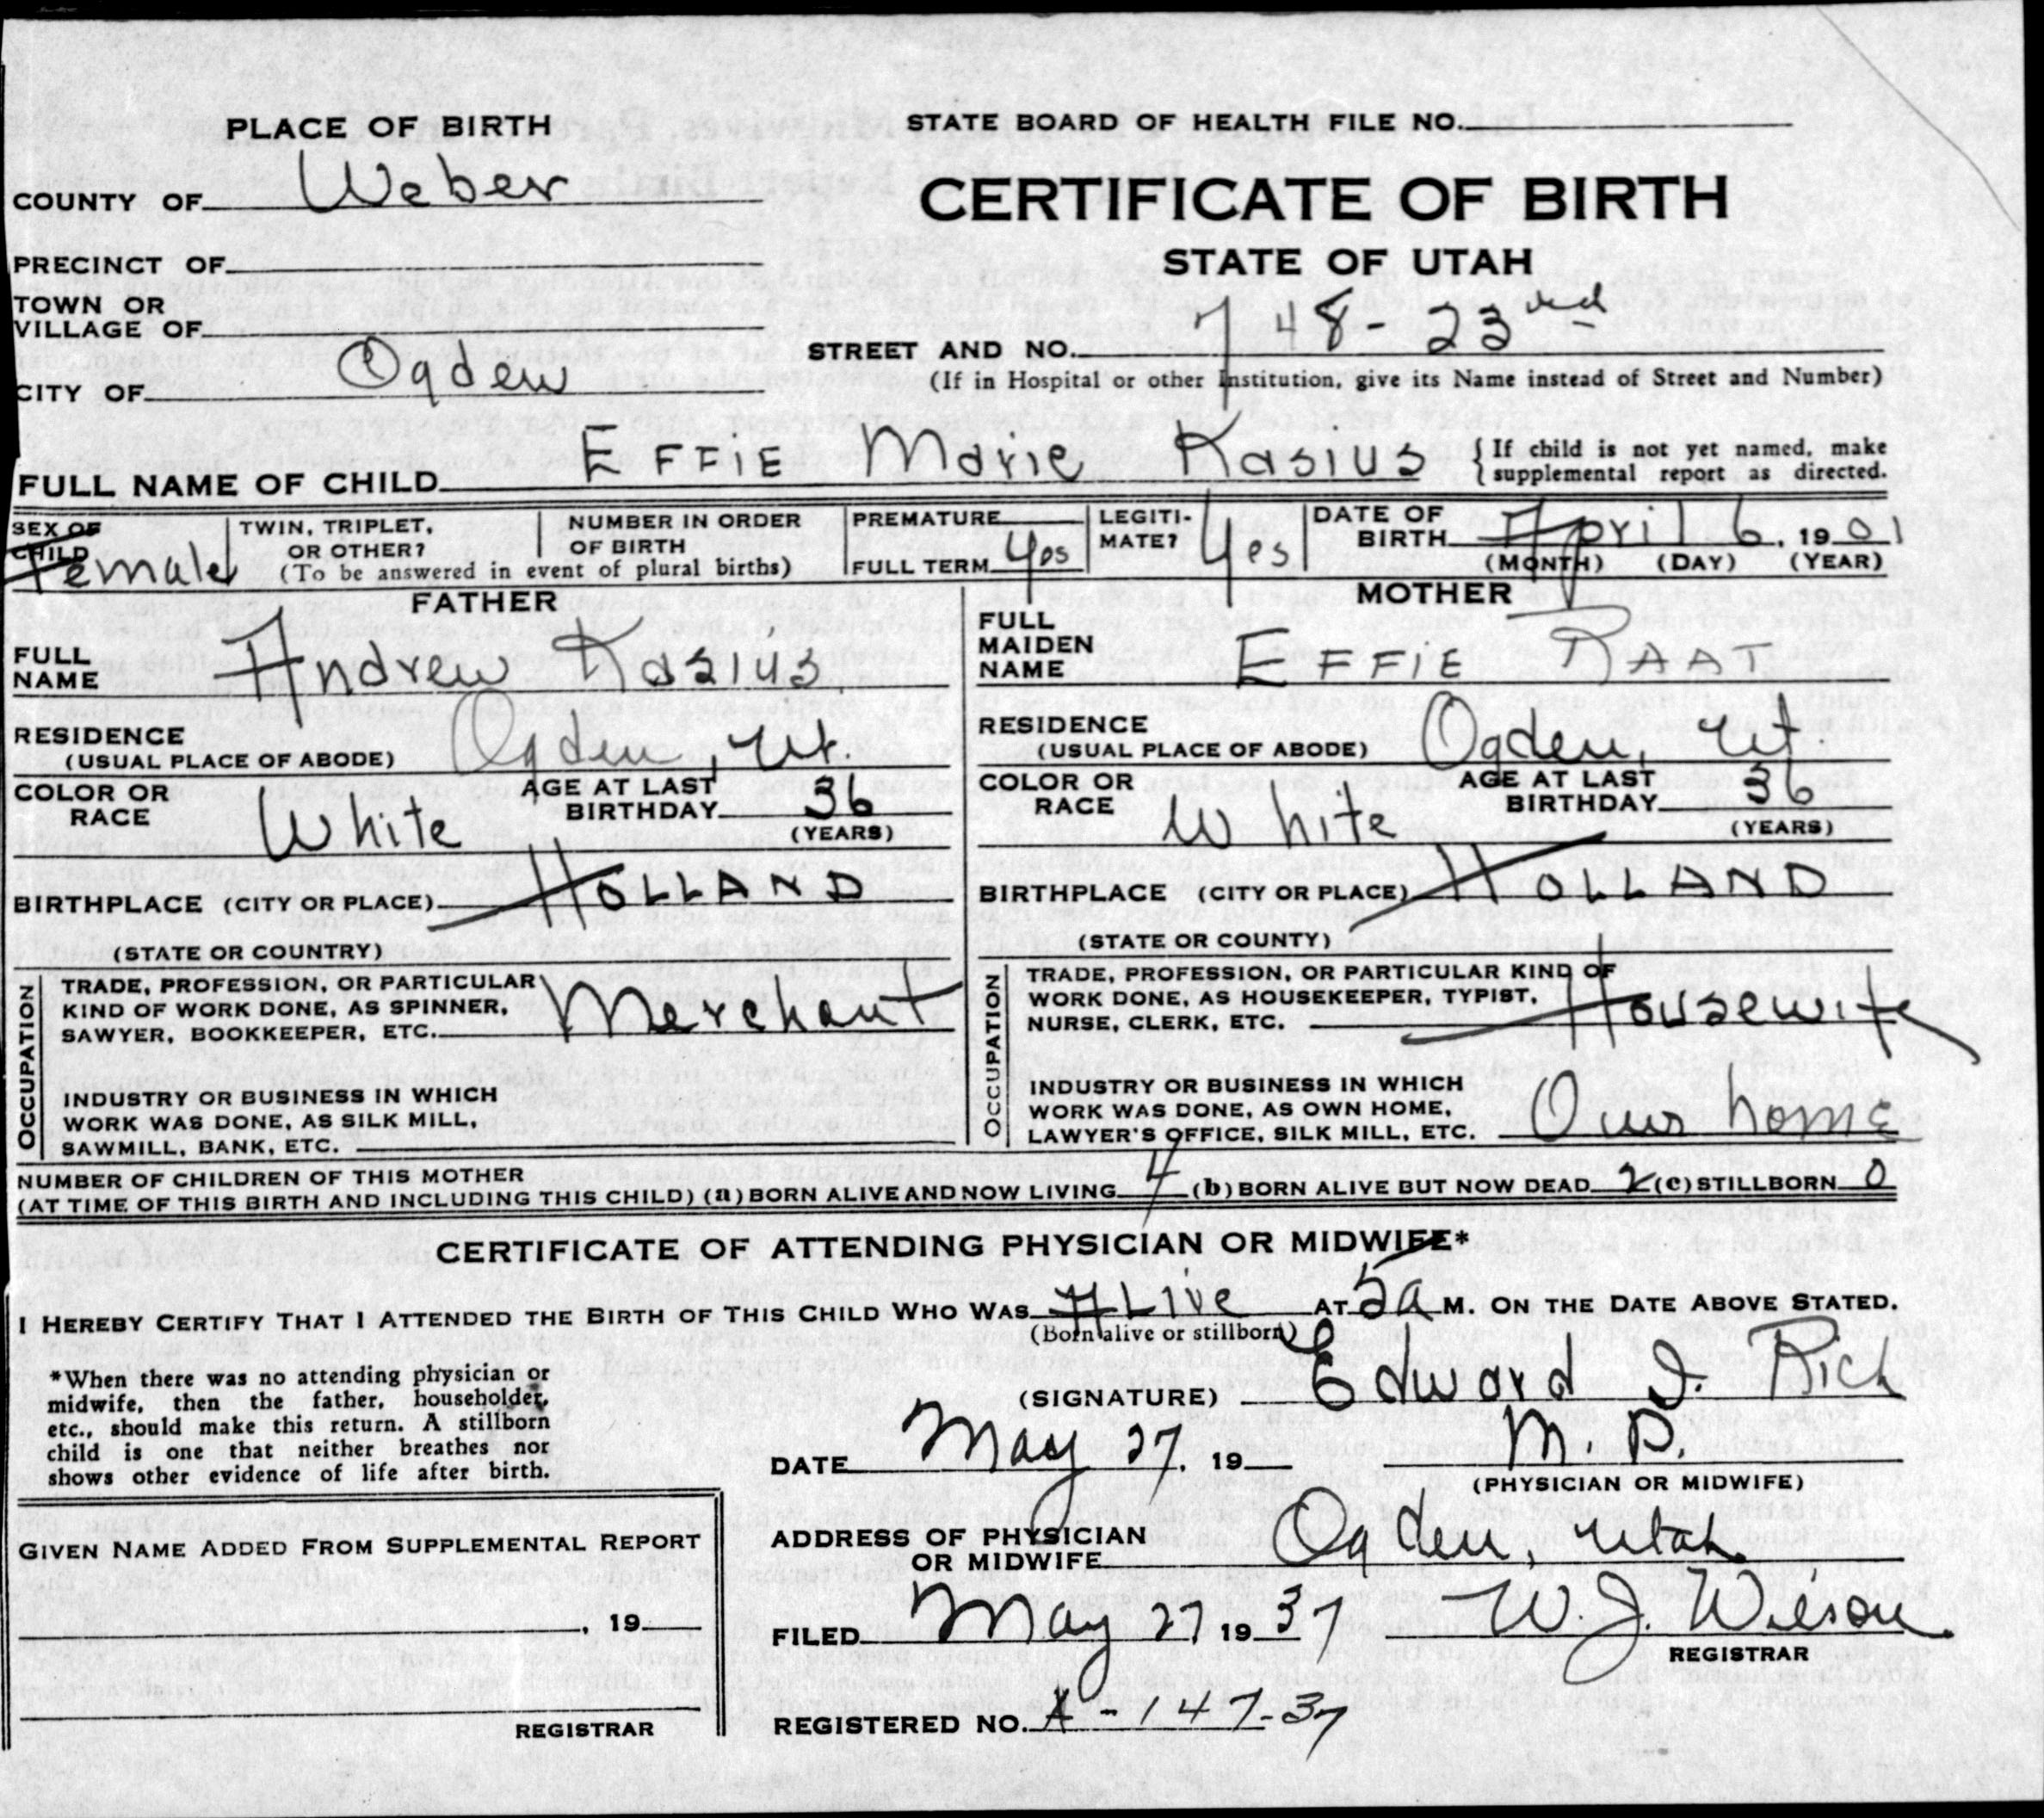 STATE BOARD OF HEALTH FILE NO.
PLACE OF BIRTH
CERTIFICATE OF BIRTH
STATE OF UTAH
COUNTY OF Weber
PRECINCT OF
TOWN OR
VILLAGE OF
CITY OF Ogden
STREET AND NO. 748-23rd
(If in Hospital or other Institution, give its Name instead of Street and Number)
FULL NAME OF CHILD EFFIE Marie Kasius { If child is not yet named, make
supplemental report as directed.
SEX OF
CHILD Female
TWIN, TRIPLET,
OR OTHER?
NUMBER IN ORDER
OF BIRTH
(To be answered in event of plural births)
PREMATURE
FULL TERM Yes
LEGITI-
MATE? Yes
DATE OF
BIRTH April 6, 1901
(MONTH) (DAY) (YEAR)
FATHER
FULL
NAME Andrew Kasius.
RESIDENCE
(USUAL PLACE OF ABODE) Ogden, Ut.
COLOR OR
RACE White
AGE AT LAST
BIRTHDAY 36
(YEARS)
BIRTHPLACE (CITY OR PLACE) HOLLAND
(STATE OR COUNTRY)
OCCUPATION
TRADE, PROFESSION, OR PARTICULAR
KIND OF WORK DONE, AS SPINNER,
SAWYER, BOOKKEEPER, ETC. Merchant
INDUSTRY OR BUSINESS IN WHICH
WORK WAS DONE, AS SILK MILL,
SAWMILL, BANK, ETC.
MOTHER
FULL
MAIDEN
NAME EFFIE RAAT
RESIDENCE
(USUAL PLACE OF ABODE) Ogden, Ut.
COLOR OR
RACE White
AGE AT LAST
BIRTHDAY 36
(YEARS)
BIRTHPLACE (CITY OR PLACE) HOLLAND
(STATE OR COUNTY)
OCCUPATION
TRADE, PROFESSION, OR PARTICULAR KIND OF
WORK DONE, AS HOUSEKEEPER, TYPIST,
NURSE, CLERK, ETC. Housewife
INDUSTRY OR BUSINESS IN WHICH
WORK WAS DONE, AS OWN HOME,
LAWYER'S OFFICE, SILK MILL, ETC. Own home
NUMBER OF CHILDREN OF THIS MOTHER
(AT TIME OF THIS BIRTH AND INCLUDING THIS CHILD) (a) BORN ALIVE AND NOW LIVING 4 (b) BORN ALIVE BUT NOW DEAD 2 (c) STILLBORN 0
CERTIFICATE OF ATTENDING PHYSICIAN OR MIDWIFE*
I HEREBY CERTIFY THAT I ATTENDED THE BIRTH OF THIS CHILD WHO WAS ALive AT 5a M. ON THE DATE ABOVE STATED.
(Born alive or stillborn)
*When there was no attending physician or
midwife, then the father, householder,
etc., should make this return. A stillborn
child is one that neither breathes nor
shows other evidence of life after birth.
(SIGNATURE) Edward I. Rich
DATE May 27, 19 M. D.
(PHYSICIAN OR MIDWIFE)
ADDRESS OF PHYSICIAN
OR MIDWIFE Ogden, Utah
FILED May 27 1937 W. J. Wilson
REGISTRAR
REGISTERED NO. A-147-37
GIVEN NAME ADDED FROM SUPPLEMENTAL REPORT
, 19
REGISTRAR